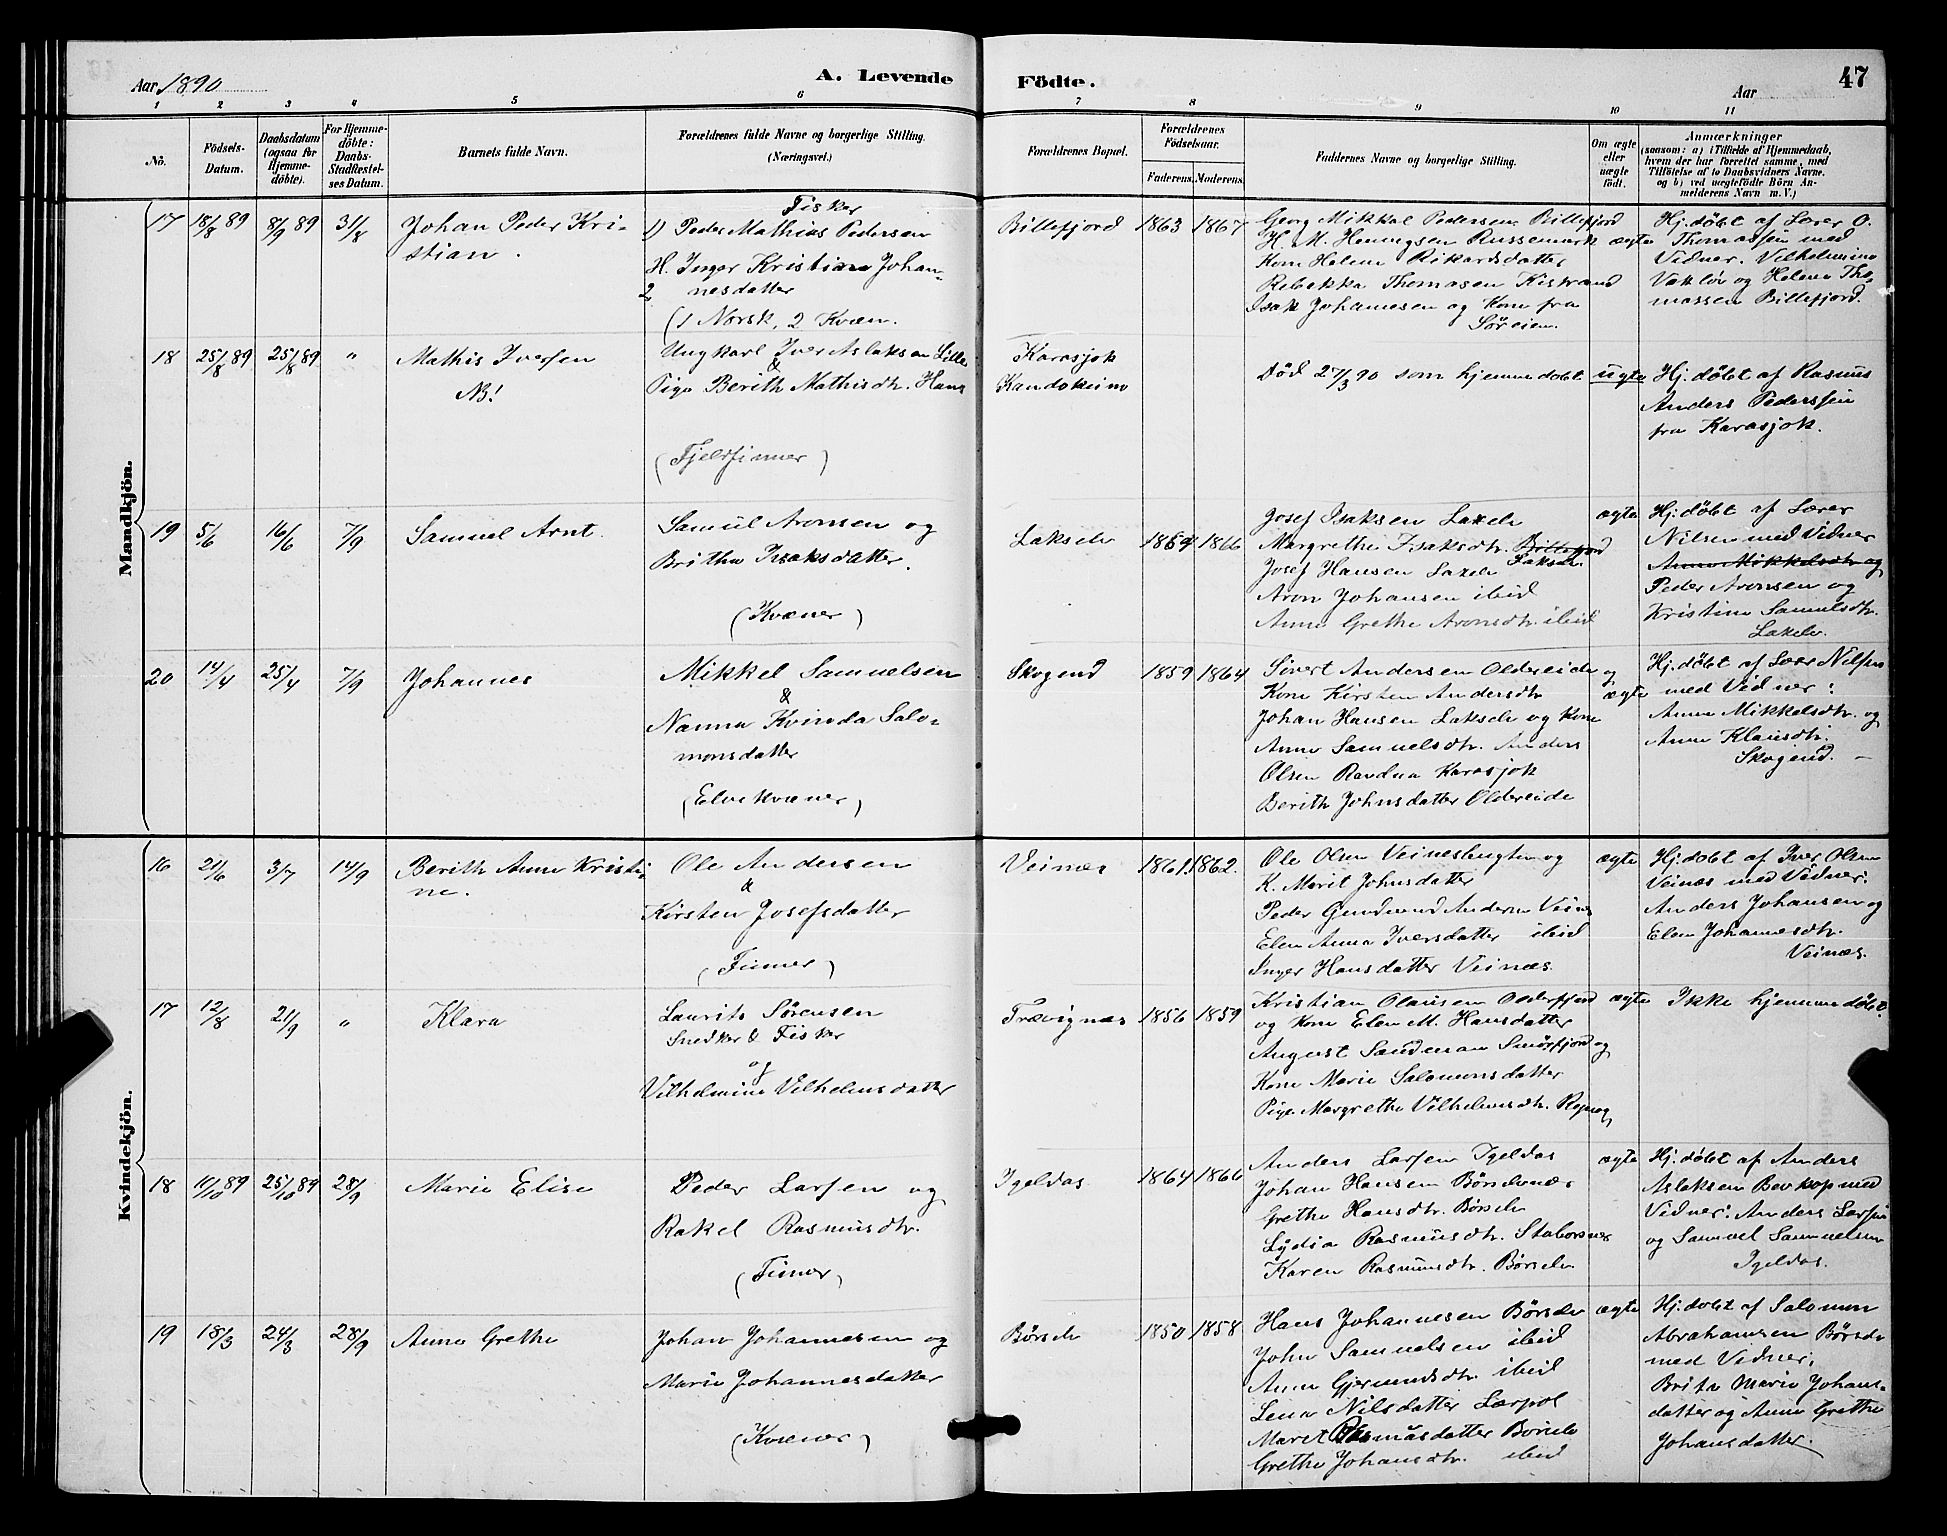 Aar 1890
A. Levende
Födte.
Aar
47
1 2 3 4 5 6 7 8 9 10 11
No.
Födsels-Datum.
Daabsdatum (ogsaa for Hjemme-döbte).
For Hjemme-döbte: Daabs-Stadfæstel-ses Datum.
Barnets fulde Navn.
Forældrenes fulde Navne og borgerlige Stilling.
(Næringsvei.)
Forældrenes Bopæl.
Forældrenes Födselsaar.
Faderens. Moderens.
Faddernes Navne og borgerlige Stilling.
Om ægte eller uægte födt.
Anmærkninger
(saasom: a) i Tilfælde af Hjemmedaab,
hvem der har forrettet samme, med
Tilföielse af to Daabsvidners Navne.
og b) ved uægtefödte Börn An-
melderens Navn m. V.)
Mandkjön.
17 18/8 89 8/9 89 31/8
Johan Peder Kri-
stian.
Fisker
1) Peder Mathias Pedersen
H. Inger Kristine Johan-
2 nesdatter
(1 Norsk, 2 Kvæn.
Billefjord 1863 1867
Georg Mikkel Pedersen Billefjord
H. M. Henrigsen Russemark
Kone Helene Rikardsdatter
Rebekka Thomasen Kistrand
Isak Johannesen og Kone fra
Søreien.
ægte
Hj. døbt af Lærer O.
Thomassen med
Vidner. Vilhelmine
Vekløv og Helene Tho-
massen Billefjord.
18 25/8 89 25/8 89 "
Mathis Iversen
NB!
Ungkarl Iver Aslaksen Lille
&
Pige Berith Mathisdtr. Hans
(Fjeldfinner)
Karasjok
Kaudokeino
Död 27/3 90 som hjemmedøbt
uægte
Hj. døbt af Rasmus
Anders Pedersen
fra Karasjok.
19 5/6 16/6 7/9
Samuel Arnt.
Samuel Aronsen og
Britha Isaksdatter.
(Kvæner)
Lakselv 1864 1866
Josef Isaksen Laxelv
Margrethe Isaksdtr. Billefjord
Lakselv
Josef Hansen Laxelv
Aron Johansen ibid
Anne Grethe Aronsdtr. ibid
ægte
Hj. døbt af Lærer
Nilsen med Vidner
Anne Mikkelsdtr og
Peder Aronsen og
Kristine Samuelsdtr.
Lakelv.
20 14/4 25/4 7/9
Johannes
Mikkel Samuelsen
&
Nanna Kvinda Salo-
monsdatter
(Elvekvæner)
Skogend 1859 1864
Sivert Andersen Oldereide og
Kone Kirsten Andersdtr
Johan Hansen Lakselv og Kone
Anne Samuelsdtr. Anders
Olsen Ravdna Karasjok
Berith Johnsdatter Oldereide
ægte
Hj. døbt af Lær Nilsen
med Vidner:
Anne Mikkelsdtr. og
Anne Klausdtr.
Skogend. —
Kvindekjön.
16 21/6 3/7 14/9
Berith Anne Kristi-
ne.
Ole Andersen
&
Kirsten Josefsdatter
(Finner)
Veinæs 1861 1862.
Ole Olsen Veinesbugten og
K. Marit Johnsdatter
Peder Gundmund Andersen Veines
Elen Anna Iversdatter ibid
Inger Hansdatter Veinæs.
ægte
Hj. døbt af Iver Olsen
Veinæs med Vidner:
Anders Johansen og
Elen Johannesdtr.
Veinæs.
17 12/8 21/9 "
Klara
Laurits Sørensen
Snedker & Fisker
og
Vilhelmine Vilhelmsdatter
Trævignæs 1856 1859
Kristian Olausen Olderfjord
og Kone Elen M. Hansdatter
August Sandman Smörfjord og
Kone Marie Salomonsdatter
Pige Margrethe Vilhelmsdtr. Repvog
ægte
Ikke hjemmedøbt.
18 11/10 89 25/10 89 28/9
Marie Elise
Peder Larsen og
Rakel Rasmusdtr.
(Finner)
Igeldas 1864 1866
Anders Larsen Igeldas
Johan Hansen Børselvnæs
Grethe Hansdtr. Børselv
Lydia Rasmusdtr. Stabursnes
Karen Rasmusdtr. Børselv
ægte
Hj. døbt af Anders
Aslaksen Bevkop med
Vidner: Anders Larsen
og Samuel Samuelsen
Igeldas.
19 18/3 24/3 28/9
Anne Grethe
Johan Johannesen og
Marie Johannesdatter
(Kvæner)
Børselv 1850 1858
Hans Johannesen Børselv
John Samuelsen ibid
Anne Gjermundsdtr ibid
Lena Nilsdatter Lærpol
Maret Rasmusdatter Börselv
Grethe Johansdtr. ibid
ægte
Hj. døbt af Salomon
Abrahamsen Børselv
med Vidner:
Brita Marie Johans-
datter og Anne Grethe
Johansdatter.